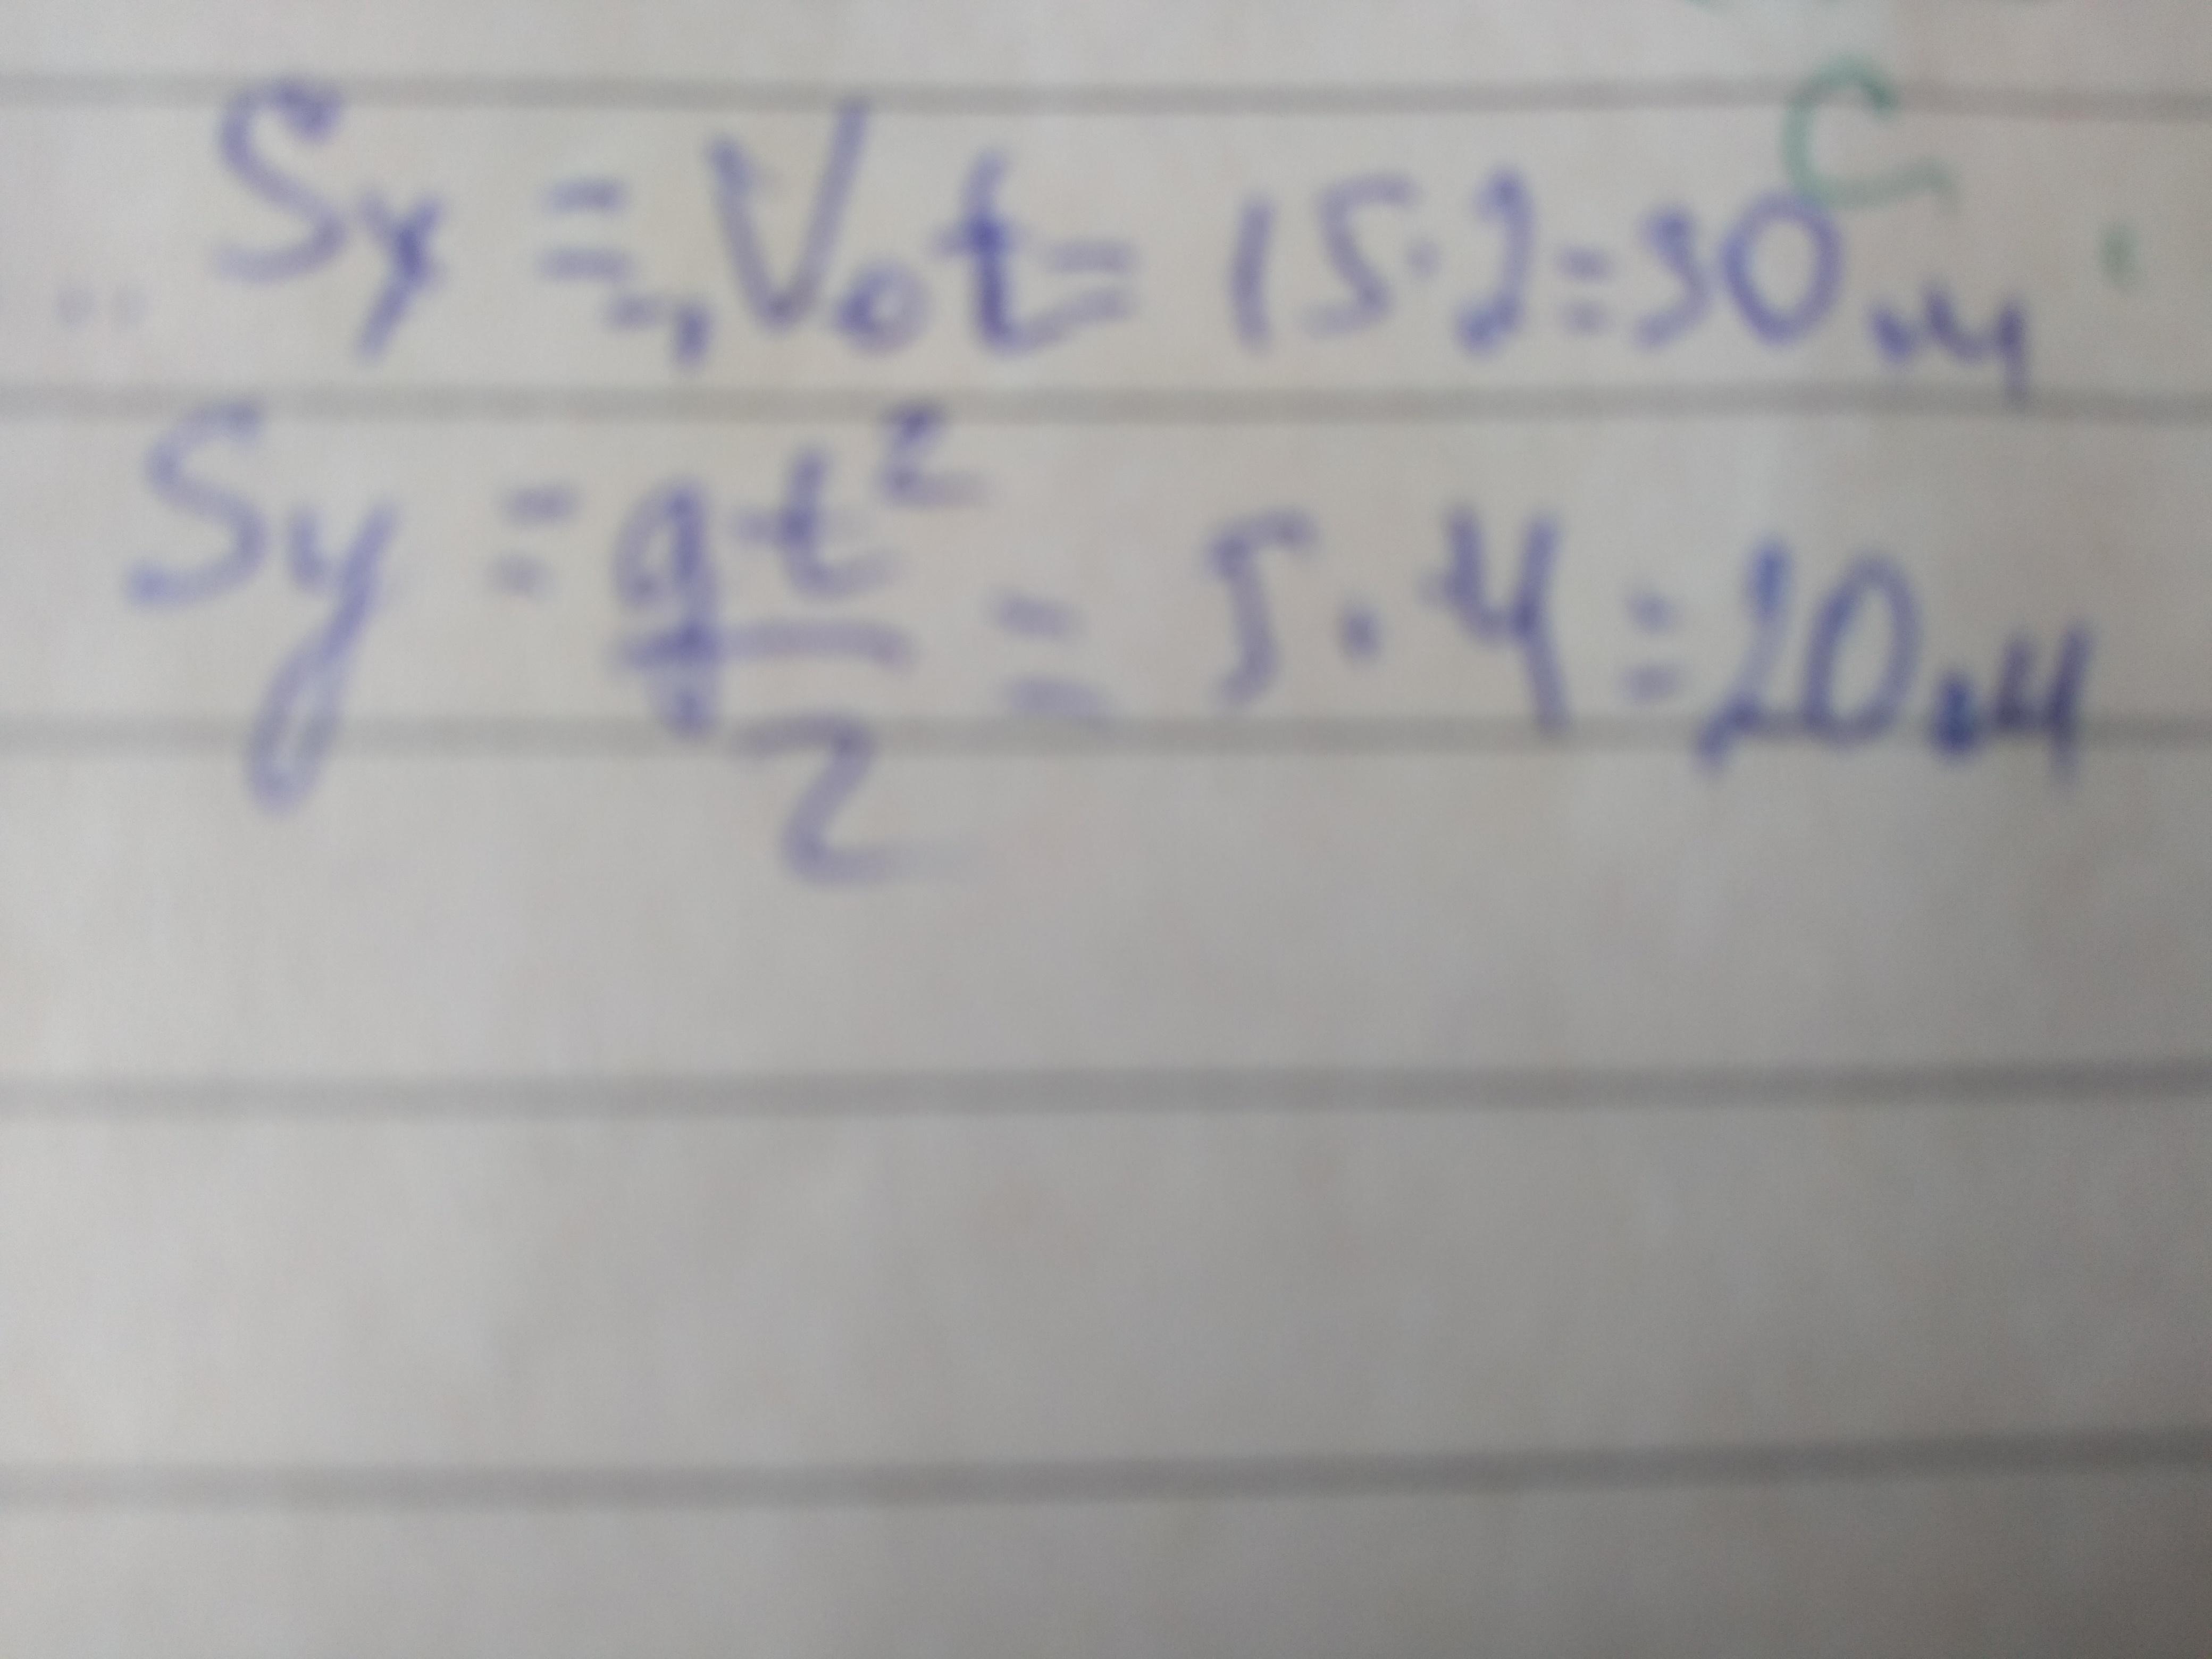 Sx = V₀t = 15·2=30м
Sy = gt²/2 = 5·4=20м